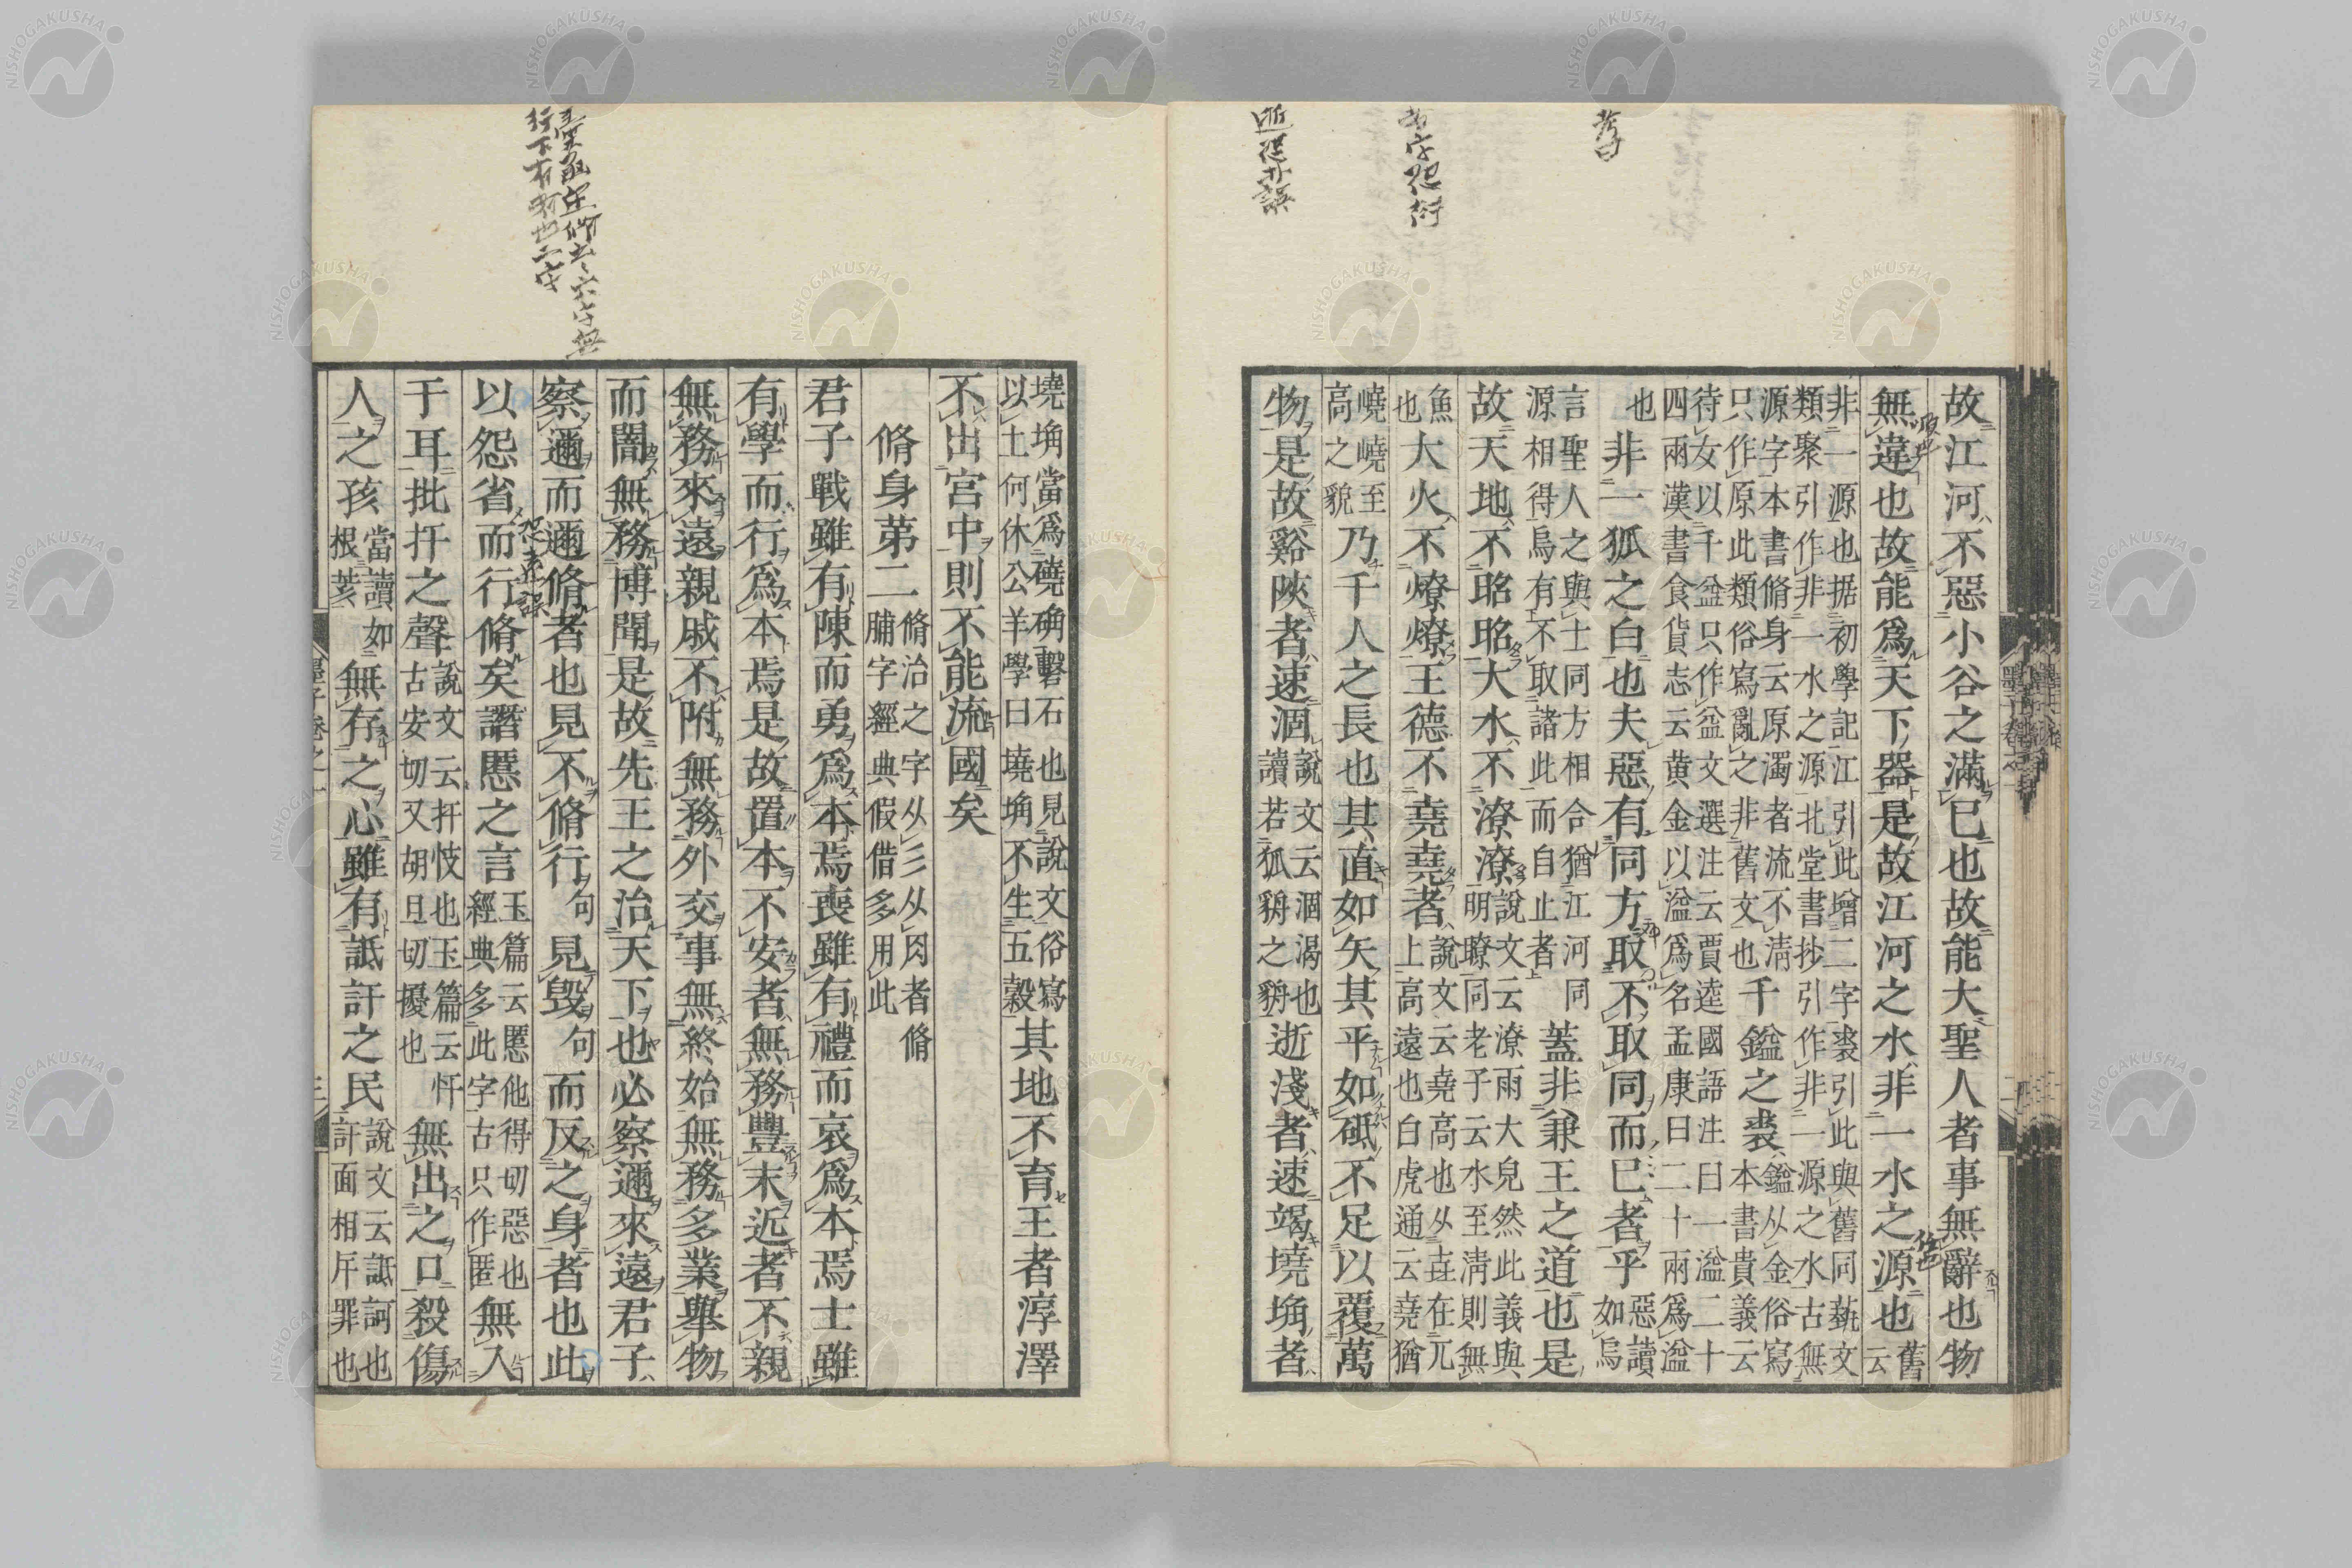 考曰
故江河不惡小谷之滿已也故能大聖人者事無辭也物
無違也故能爲天下器是故江河之水非一水之源也舊
云
非一源也据初學記江引此增二字裘引此與舊同蓺文
類聚引作非一水之源北堂書抄引作非一源之水古無
源字本書脩身云原濁者流不淸
只作原此類俗寫亂之非舊文也
千鎰之裘
鎰从金俗寫
本書貴義云
待女以千益只作益文選注云賈逵國語注曰一溢二十
四兩漢書食貨志云黄金以溢爲名孟康曰二十兩爲溢
也
非一狐之白也夫惡有同方取不取同而已者乎
惡讀
如烏
言聖人之與士同方相合猶江河同
源相得烏有不取諸此而自止者
蓋非兼王之道也是
故天地不昭昭大水不潦潦
說文云潦雨大皃然此義與
明瞭同老子云水至淸則無
魚
也
大火不燎燎王德不堯堯者
說文云堯高也从垚在兀
上高遠也白虎通云堯猶
嶢嶢至
高之貌
乃千人之長也其直如矢其平如砥不足以覆萬
物是故谿陜者速涸
說文云涸渴也
讀若狐貈之貈
逝淺者速竭墝埆者
墝埆當爲磽确磬石也見說文俗寫
以土何休公羊學曰墝埆不生五穀
其地不育王者淳澤
不出宮中則不能流國矣
脩身第二
脩治之字从彡从肉者脩
脯字經典假借多用此
君子戰雖有陳而勇爲本焉喪雖有禮而哀爲本焉士雖
有學而行爲本焉是故置本不安者無務豐末近者不親
無務來遠親戚不附無務外交事無終始無務多業舉物
而闇無務博聞是故先王之治天下也必察邇來遠君子
察邇而邇脩者也見不脩行句見毀句而反之身者也此
以怨省而行脩矣譖慝之言
玉篇云慝他得切惡也
經典多此字古只作匿
無入
于耳批扞之聲
說文云扞忮也玉篇云忓
古安切又胡旦切擾也
無出之口殺傷
人之孩
當讀如
根荄
無存之心雖有詆訐之民
說文云詆訶也
訐面相斥罪也